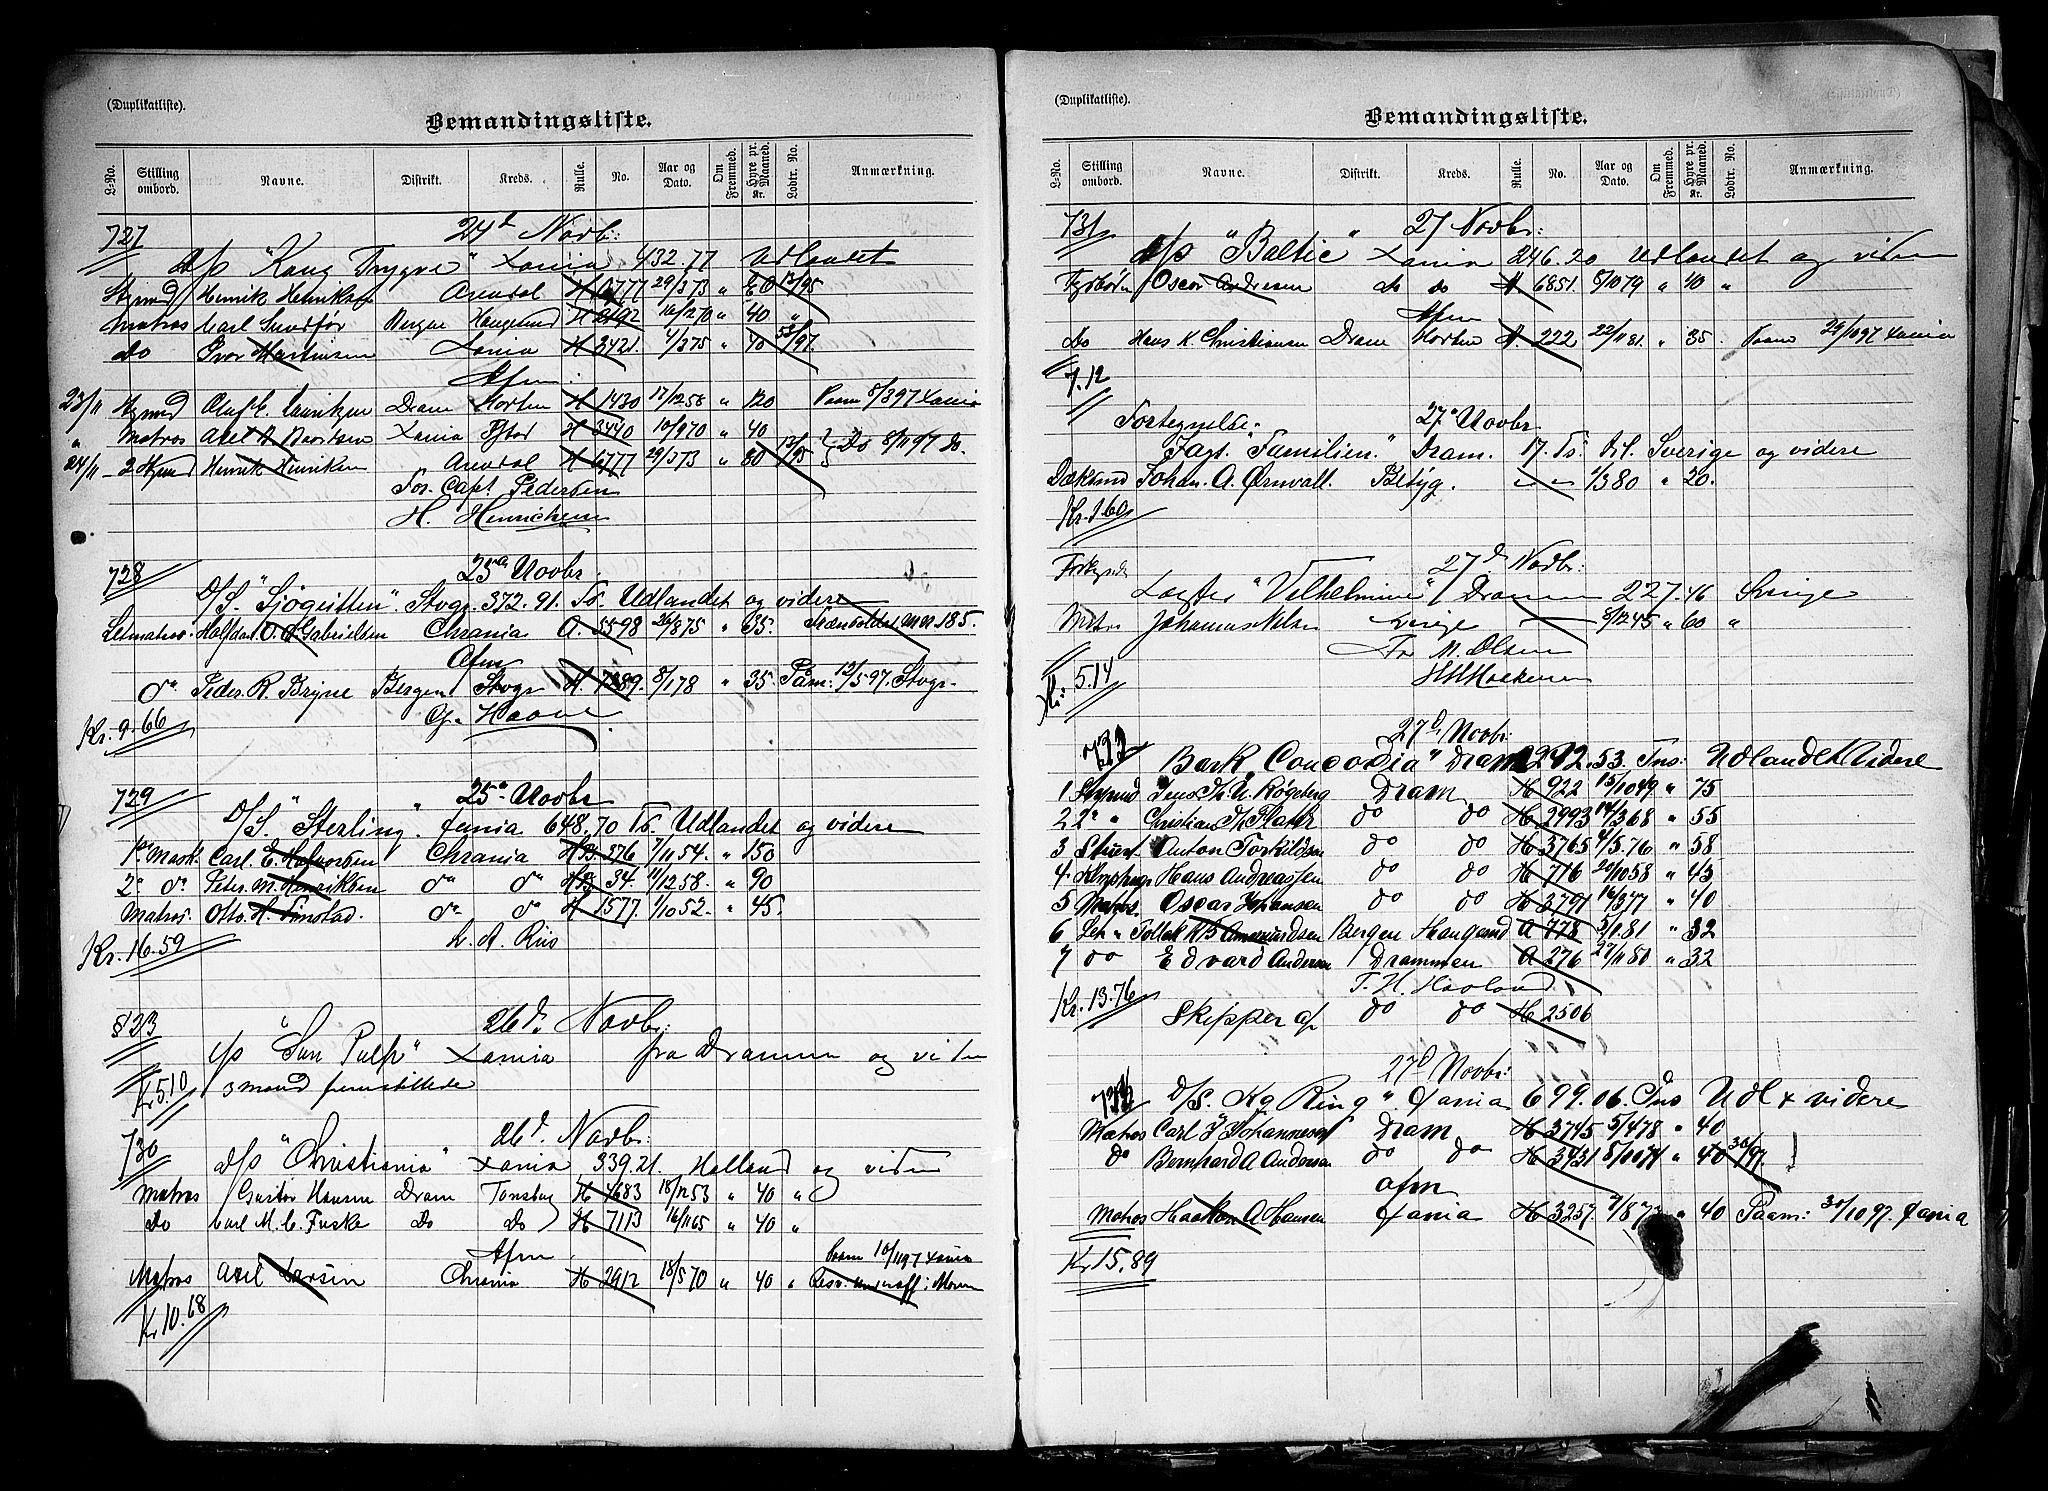 (Duplikatliste).
Bemandingsliste.
L-No. Stilling ombord. Navne. Distrikt. Kreds. Rulle. No. Aar og Dato. Om Fremmed. Hyre pr. Maaned. Kr. Lodtr. No. Anmærkning.
727 24d Novb:
D/S "Kong Trygve" Xania 432.77 Udlandet
Styrmd Henrik Henriksen Arendal H 6777 29/3 73 " 80 13/95
Matros Carl Sundfør Bergen Haugesund H 2192 10/2 70 " 40 "
do Ivar Martinsen Xania H 3421 4/3 75 " 40 53/97
Afm:
23/11 Styrmd Oluf C. Lauritzen Dram Horten H 1430 17/12 58 " 120 Paam 8/8 97 Xania
" Matros Axel B. Xania H 3440 10/9 70 " 40
24/11 2 Styrmd Henrik Henriksen Arendal H 6777 29/3 73 " 80 13/95 Do 8/11 97 do.
For Capt. Pedersen
H. Henrichsen
728 25de Novbr.
D/S. "Sjøgutten" Stvgr. 372.91. Ts. Udlandet og videre
Letmatros. Halfdan O. Gabrielsen Chrania A. 5598 26/8 75 " 35. 185.
Afm
do Peder R. Bryne Bergen Stvgr H. 7389. 8/1 78 " 35. Påm: 12/5 97. Stvgr.
Kr. 9.66 G. Haave
729 25de Novbr
D/S. "Sterling" Xania 648.70 Ts. Udlandet og videre
1ste Mask. Carl E. Halvorsen Chrania H 376 7/10 54. " 150
2n do. Peter M. Henriksen do do H 34. 11/12 58. " 90
Matros. Otto H. Timstad. do do H 1577. 1/10 52. " 45.
Kr. 16.59 L. A. Riis
§ 23 26d. Novb:
D/S "Sun Pulp" Xania fra Drammen og viden
Kr 5.10 3 mand fremstillede
730 26d. Novb:
D/S "Christiania" Xania 339.21. Holland og viden
Matros Gustav Hansen Dram Tønsbag H 4683 18/12 53 " 40 "
Do Carl M. C. Fuske Do Do H 7113 16/11 65 " 40 "
Afm. Paam 10/11 97 Xania
Matros Axel Larsen Chrania H 2912 18/5 70 " 40 "
Kr 10.68
(Duplikatliste).
Bemandingsliste.
L-No. Stilling ombord. Navne. Distrikt. Kreds. Rulle. No. Aar og Dato. Om Fremmed. Hyre pr. Maaned. Kr. Lodtr. No. Anmærkning.
731 27 Novbr:
D/S "Baltic" Xania 246.20 Udlandet og viden
Fyrbøder Oscar Andresen do do A. 6851. 8/10 79 " 40 "
Afm
Do Hans K. Christiansen Dram Horten A. 222 22/11 81. " 35. Paam 29/10 97 Xania
7.12
Fortegnelse. 27de Novbr
Jagt. "Familien" Dram. 17. Ts: Til. Sverige og videre
Dæksmd Johan. A. Ørnvall. Betyg. — 1/3 80 " 20.
Kr. 1.60
27d Novbr:
Lægter "Vilhelmine" Drammen 227.46 Sverige
Matros Johannes Nilsen Sverige — 8/12 45 " 60 "
For M. Olsen
Kr: 5.14
733 27d Novbr:
Bark Concordia" Dram 1292.53. Tns: Udlandet & Videre
1 Styrmd Jens Th. N. Røgeberg Dram H 922 15/10 49 " 75
2 2n " Christian Th Flaatz do do H 2993 14/3 68 " 55
3 Stuert Anton Torkildsen do do H 3765 4/5.76 " 58
4 Hans Andreassen do do H 716 20/10 58 " 45
5 Matros. Oscar Johansen do do H 3791 16/3 77 " 40
6 Let " Tollak K B Amundsen Bergen Haugesund A 778 5/1.81 " 32
7 do Edvard Andersen Drammen A 276 27/11 80 " 32
Kr. 13.76 T. H. Haaland
Skipper af do do H 2506
27d Novbr:
D/S. Kg Ring ". Xania 699.06. Tns Udl & videre
Matros Carl J Johannesen Dram H 3745 5/4 78 " 40
do Bernhard A Andersen do do H 3931 8/10 74 " 40 30/97.
afm
Matros Haakon A Hansen Xania H 3257 9/8 73 " 40 Paam: 30/10 97. Xania
Kr 15.89